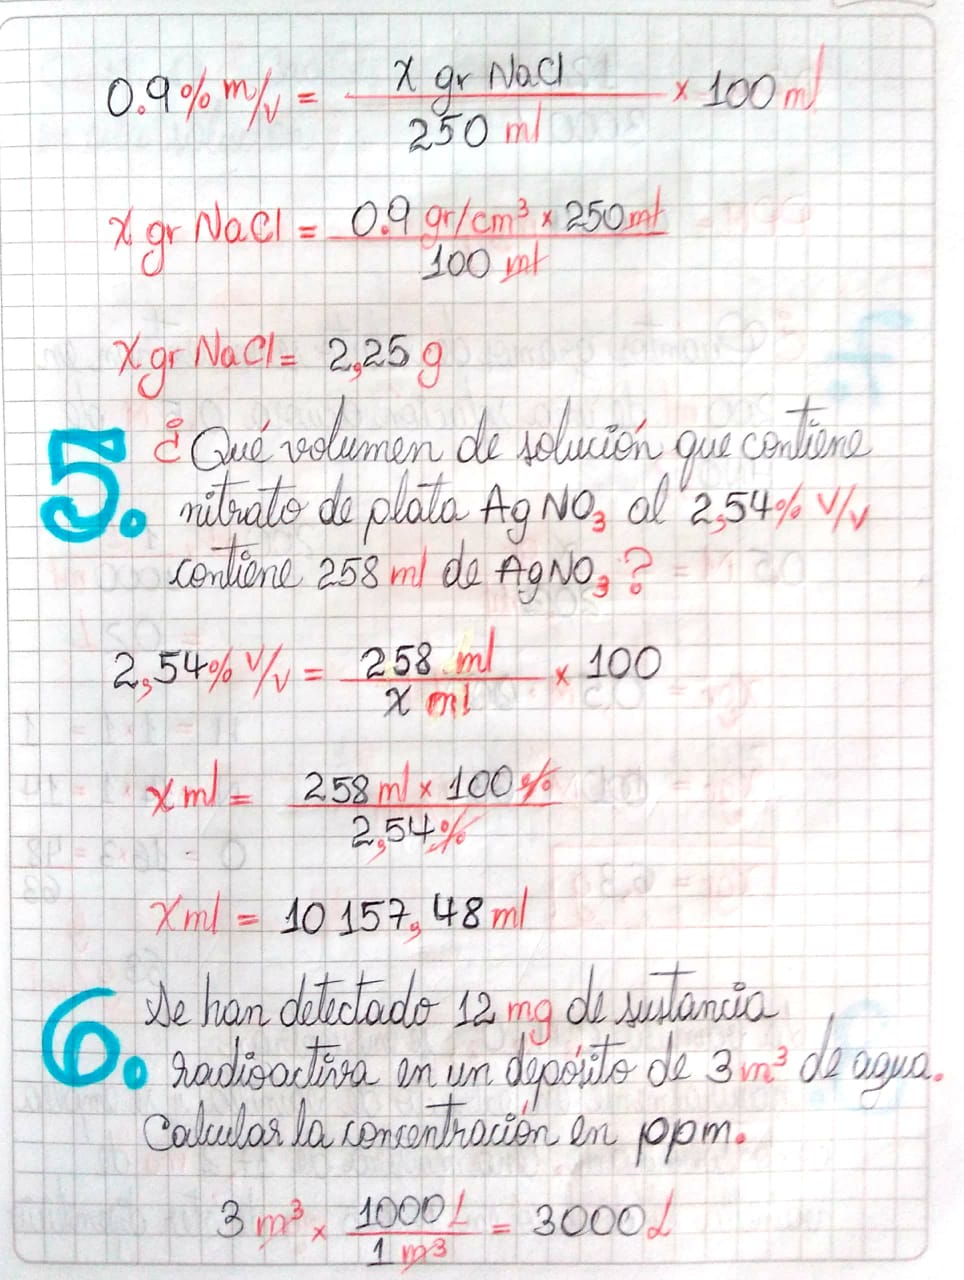 0.9% m/v = x gr NaCl / 250 ml × 100 ml
x gr NaCl = 0.9 gr/cm³ × 250 ml / 100 ml
x gr NaCl = 2,25 g
5. ¿Qué volumen de solución que contiene
nitrato de plata AgNO₃ al 2,54% v/v
contiene 258 ml de AgNO₃?
2,54% v/v = 258 ml / x ml × 100
x ml = 258 ml × 100 % / 2,54 %
x ml = 10 157,48 ml
6. Se han detectado 12 mg de sustancia
radioactiva en un depósito de 3 m³ de agua.
Calcular la concentración en ppm.
3 m³ × 1000 L / 1 m³ = 3000 L